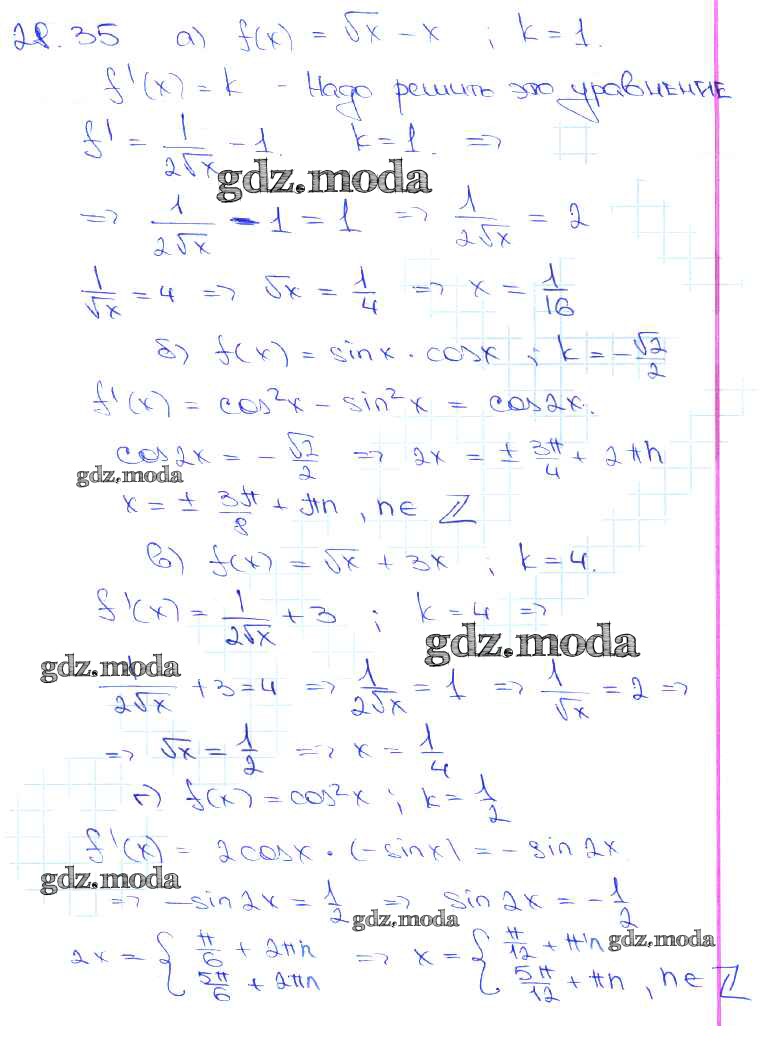 28.35 а) f(x) = √x − x ; k = 1.
f'(x) = k - Надо решить это уравнение
f' = 1/(2√x) − 1. k = 1. =>
gdz.moda
=> 1/(2√x) − 1 = 1 => 1/(2√x) = 2
1/√x = 4 => √x = 1/4 => x = 1/16
б) f(x) = sinx · cosx ; k = −√2/2
f'(x) = cos²x − sin²x = cos2x.
cos2x = −√2/2 => 2x = ± 3π/4 + 2πn
gdz.moda
x = ± 3π/8 + πn , n∈ Z
в) f(x) = √x + 3x ; k = 4.
f'(x) = 1/(2√x) + 3 ; k = 4 =>
gdz.moda
gdz.moda
1/(2√x) + 3 = 4 => 1/(2√x) = 1 => 1/√x = 2 =>
=> √x = 1/2 => x = 1/4
г) f(x) = cos²x ; k = 1/2
f'(x) = 2cosx · (−sinx) = − sin2x
gdz.moda
=> −sin2x = 1/2 => sin2x = −1/2
gdz.moda
2x = { π/6 + 2πn => x = { π/12 + πn
gdz.moda
5π/6 + 2πn 5π/12 + πn , n∈ Z